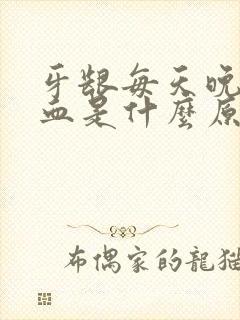 牙龈每天晚
血是什麼原
布偶家的龍猫